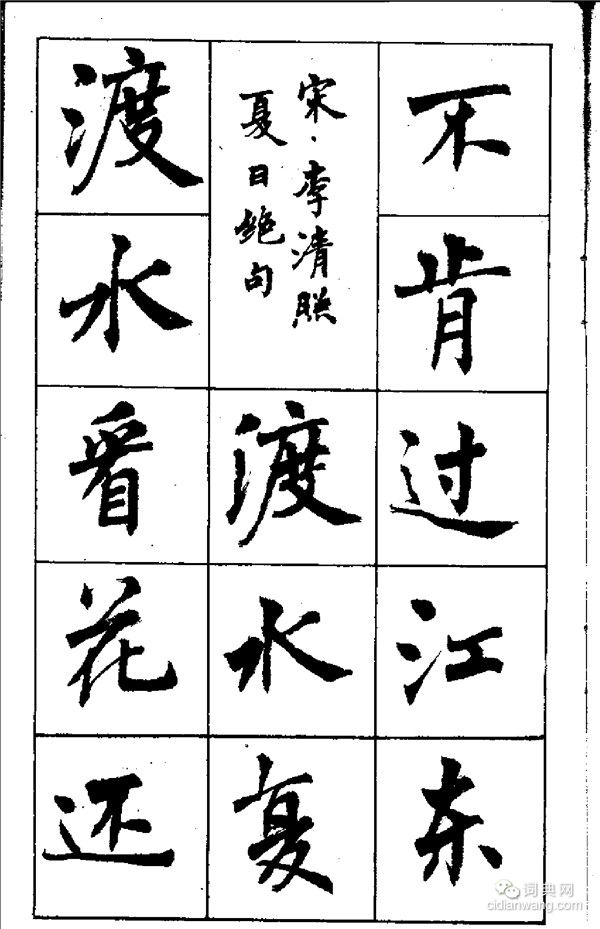 不肯过江东
宋·李清照
夏日绝句
渡水复
渡水看花还
词典网
cidianwang.com